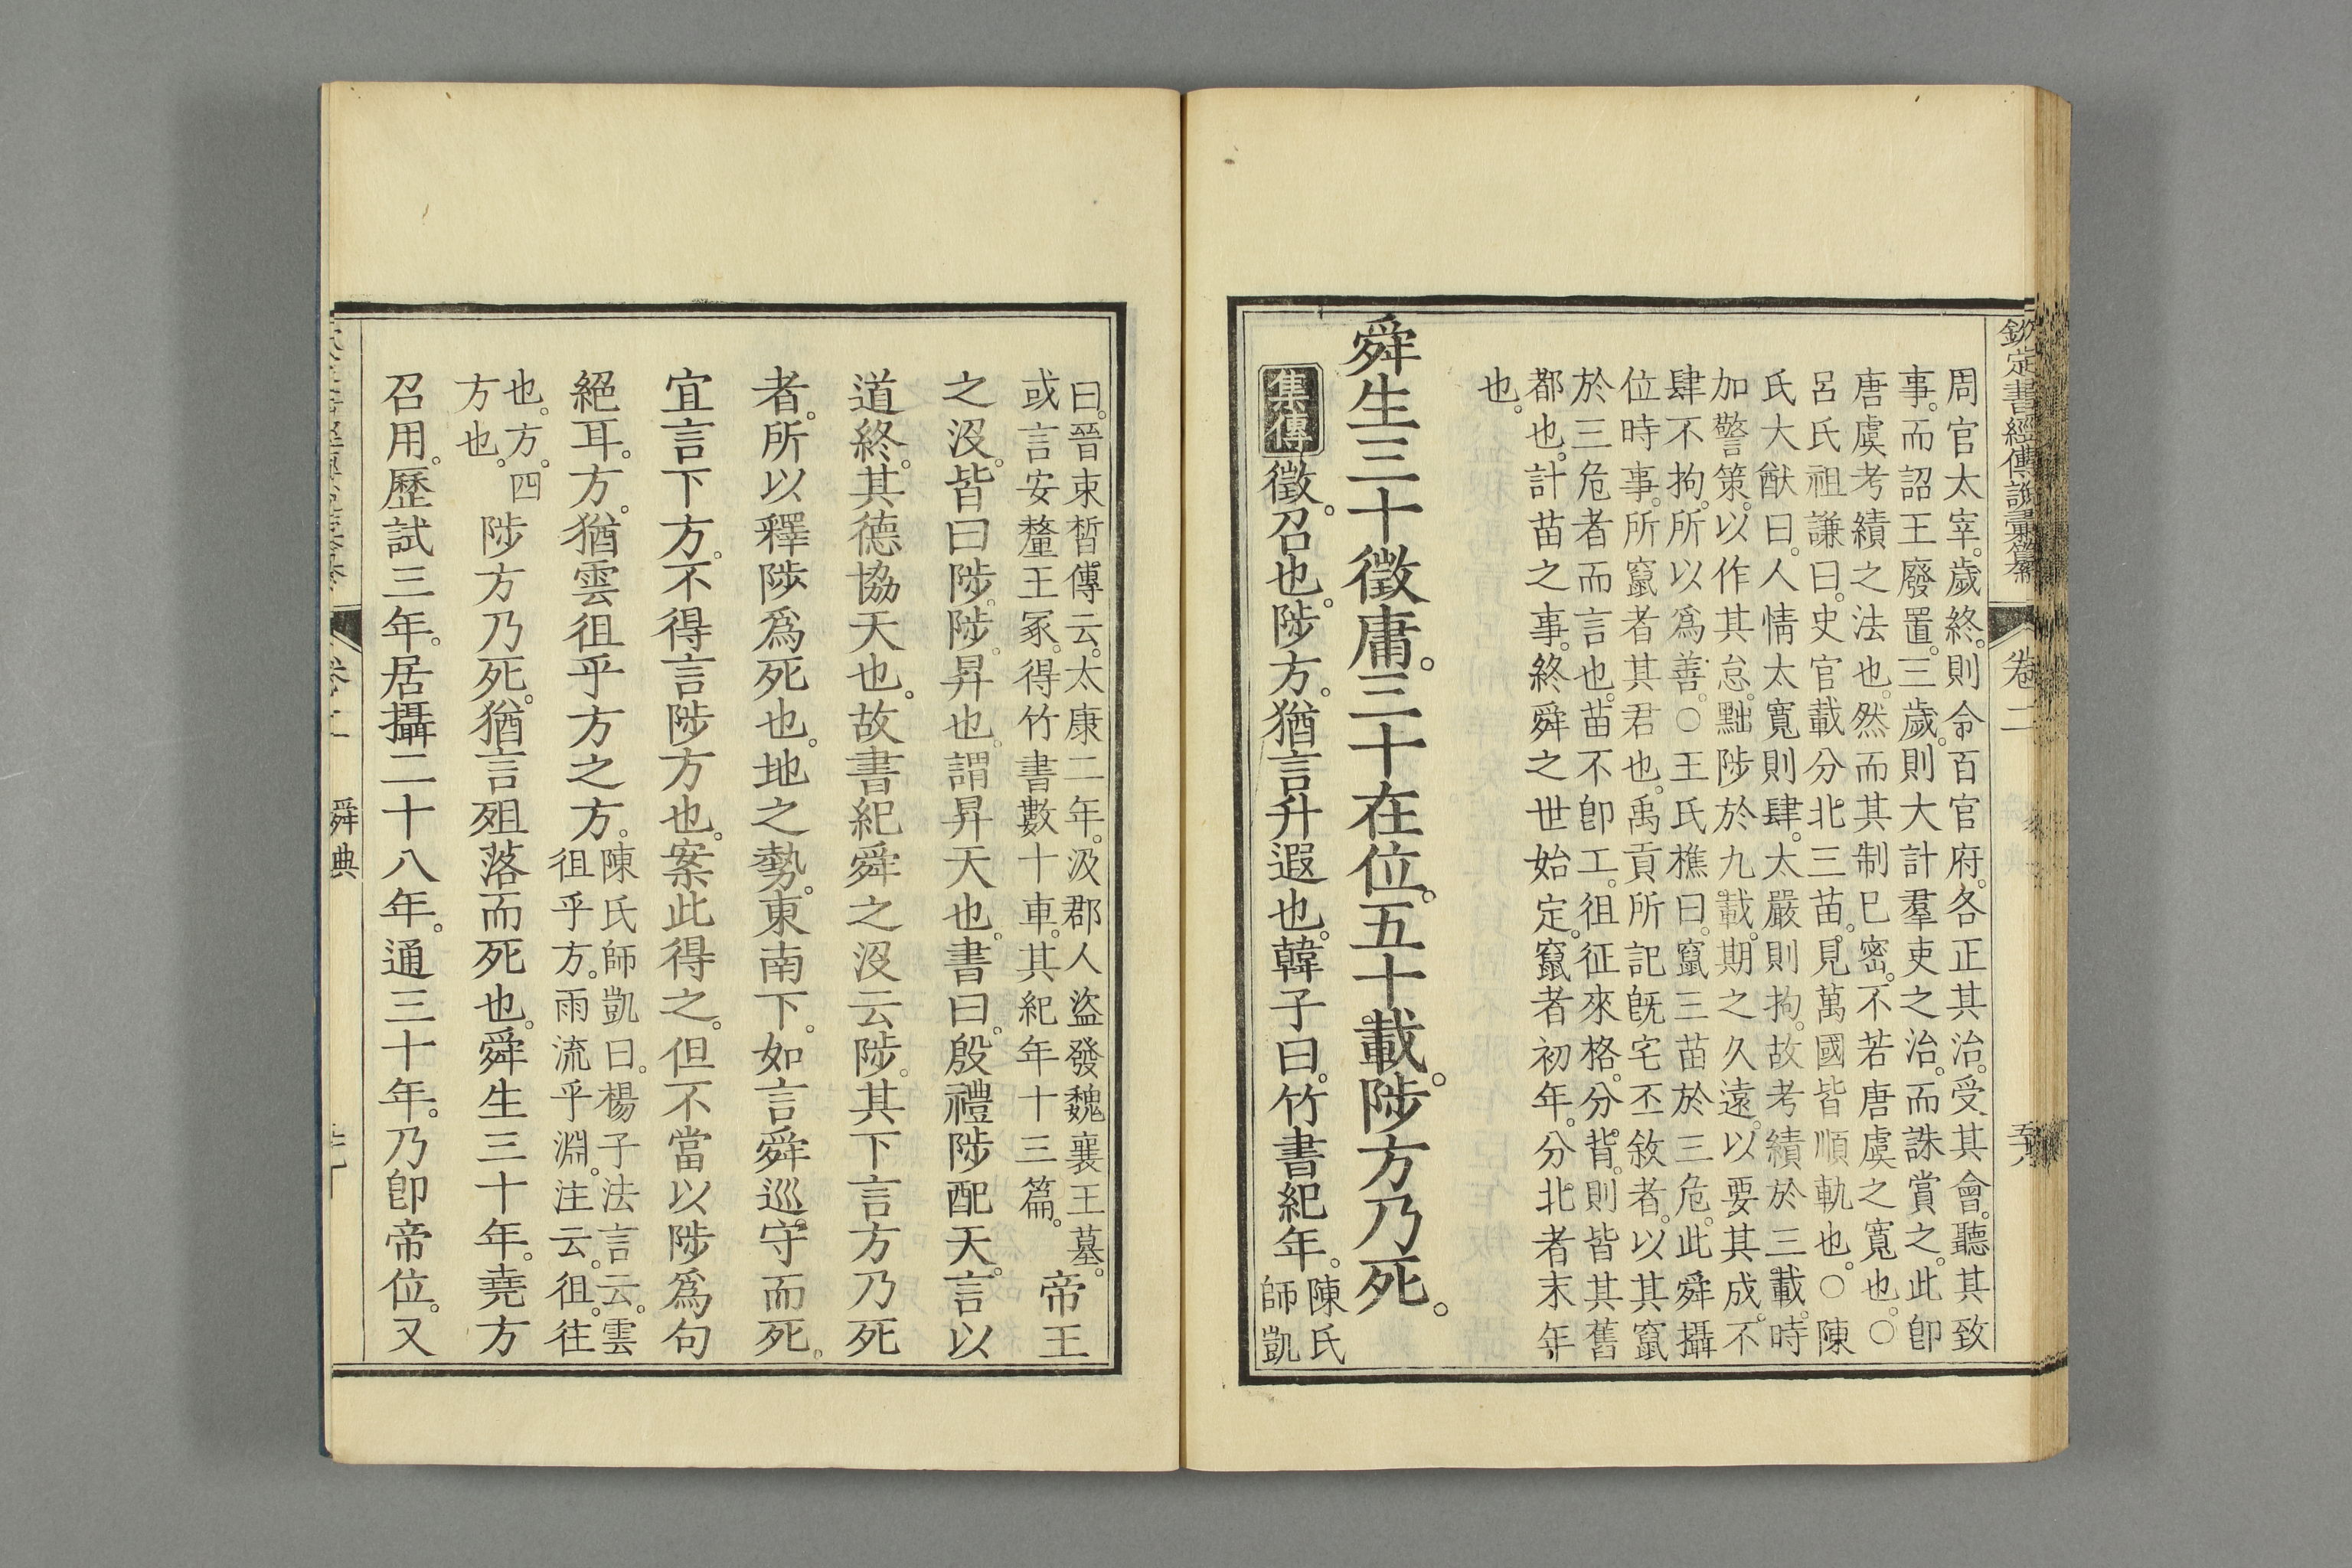 欽定書經傳說彙纂 卷二
周官太宰。歲終。則令百官府。各正其治。受其會。聽其致
事。而詔王廢置。三歲。則大計羣吏之治。而誅賞之。此卽
唐虞考績之法也。然而其制巳密。不若唐虞之寬也。○
呂氏祖謙曰。史官載分北三苗。見萬國皆順軌也。○陳
氏大猷曰。人情太寬則肆。太嚴則拘。故考績於三載。時
加警策。以作其怠。黜陟於九載。期之久遠。以要其成。不
肆不拘。所以爲善。○王氏樵曰。竄三苗於三危。此舜攝
位時事。所竄者其君也。禹貢所記旣宅丕敘者。以其竄
於三危者而言也。苗不卽工。徂征來格。分背。則皆其舊
都也。計苗之事。終舜之世始定。竄者初年。分北者末年
也。
舜生三十徵庸。三十在位。五十載。陟方乃死。
集傳 徵。召也。陟方。猶言升遐也。韓子曰。竹書紀年。陳氏
師凱
曰。晉束皙傳云。太康二年。汲郡人盜發魏襄王墓。
或言安釐王冢。得竹書數十車。其紀年十三篇。帝王
之沒。皆曰陟。陟。昇也。謂昇天也。書曰。殷禮陟配天。言以
道終。其德協天也。故書紀舜之沒云陟。其下言方乃死
者。所以釋陟爲死也。地之勢。東南下。如言舜巡守而死。
宜言下方。不得言陟方也。案此得之。但不當以陟爲句
絕耳。方。猶雲徂乎方之方。陳氏師凱曰。楊子法言云。雲
徂乎方。雨流乎淵。注云。徂。往
也。方。四
方也。陟方乃死。猶言殂落而死也。舜生三十年。堯方
召用。歷試三年。居攝二十八年。通三十年。乃卽帝位。又
舜典